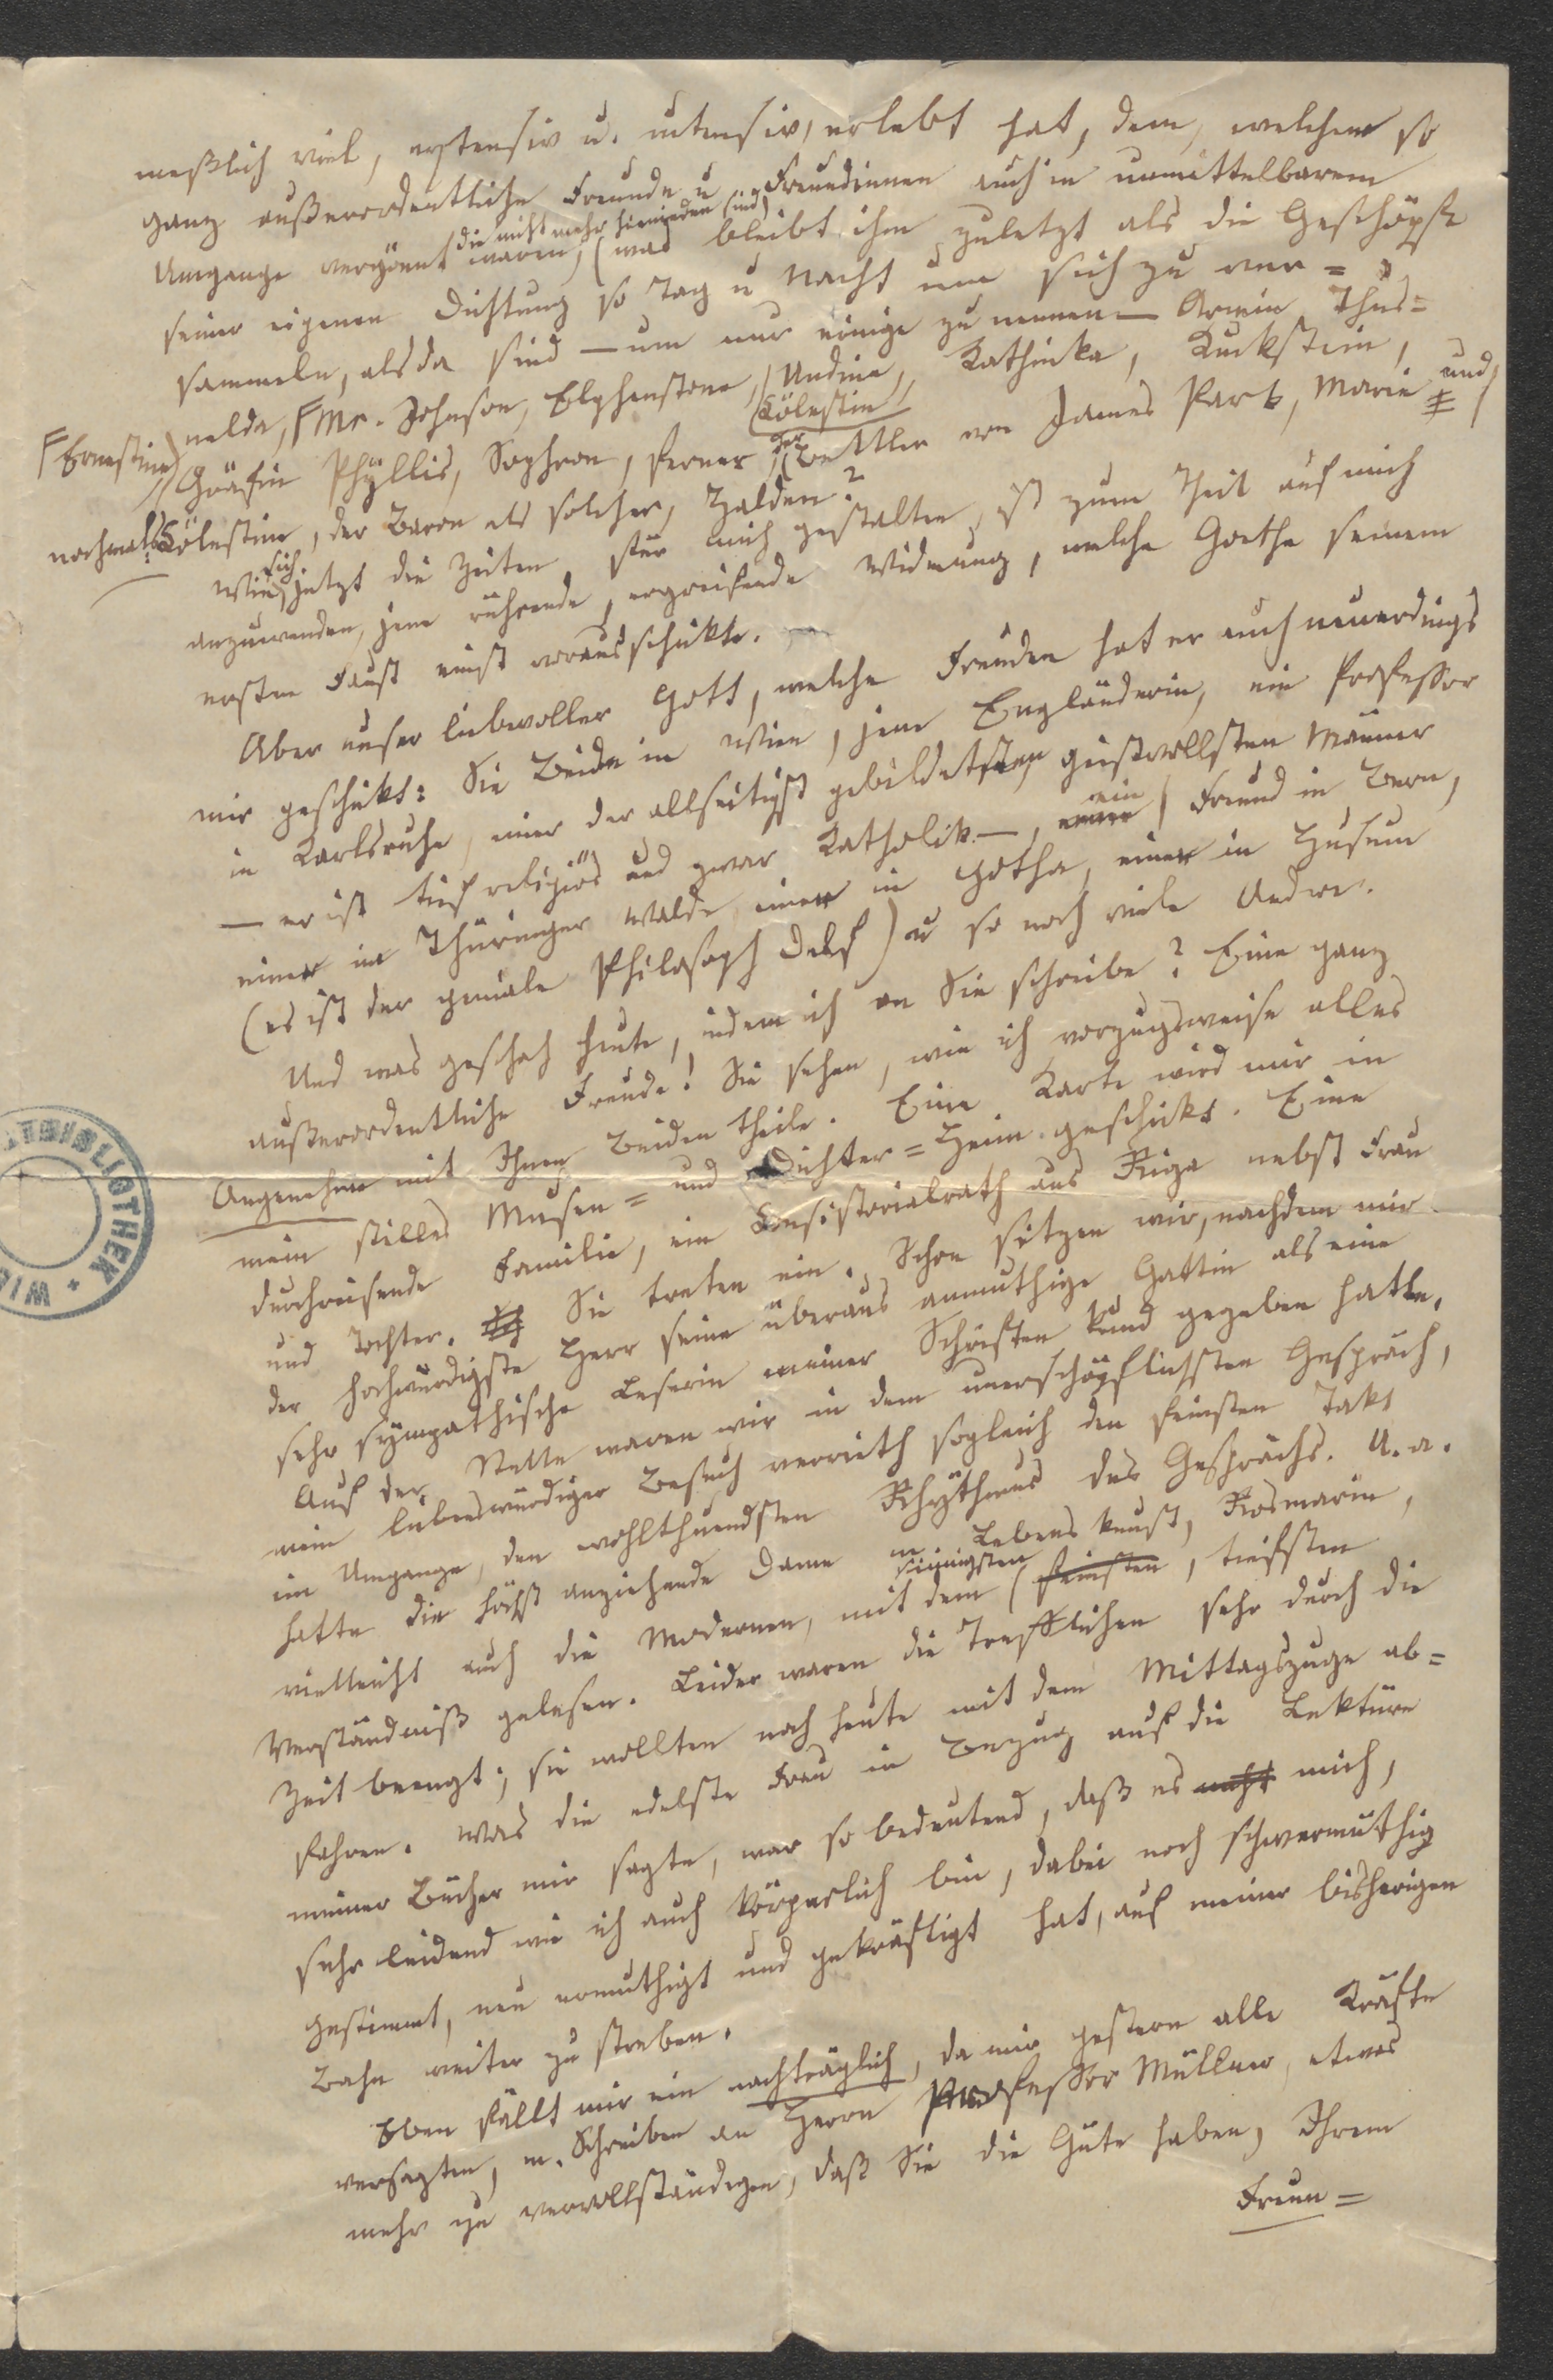 meßlich viel, extensiv u. intensiv, erlebt hat, dem, welchem so
ganz außerordentliche Freunde u Freundinnen auch in unmittelbarem
die nicht mehr hienieden sind)
Umgange vergönnt waren, (was bleibt ihm zuletzt als die Geschöpfe
seiner eigenen Dichtung so Tag u Nacht um sich zu ver=
sammeln, als da sind — um nur einige zu nennen — Armin, Thus=
nelda, Mr. Johnson, Elphenstone, Undine, Kathinka, Kuckstein,
Ernestine) Cölestin
Gräfin Phyllis, Sophron, ferner der Bettler von James Park, Marie und
nochmals Cölestine, der Baron als solcher, Halden?
Wie sich jetzt die Zeiten für mich gestalten, ist zum Theil auf mich
anzuwenden, jene rührende, ergreifende Widmung, welche Goethe seinem
ersten Faust einst vorausschickte.
Aber unser liebevoller Gott, welche Freuden hat er auch neuerdings
mir geschickt: Sie Beide in Wien, jene Engländerin, ein Professor
in Karlsruhe, einer der allseitigst gebildetsten geistvollsten Männer
— er ist tief religiös und zwar Katholik —, ein Freund in Bern,
einer im Thüringer Walde, einer in Gotha, einer in Husum
(es ist der geniale Philosoph Delff) u so noch viele Andre.
Und was geschah heute, indem ich an Sie schreibe? Eine ganz
außerordentliche Freude! Sie sehen, wie ich vorzugsweise alles
Angenehme mit Ihnen Beiden theile. Eine Karte wird mir in
mein stilles Musen= und Dichter=Heim geschickt. Eine
durchreisende Familie, ein Consistorialrath aus Riga nebst Frau
und Tochter. Sie treten ein. Schon sitzen wir, nachdem mir
der hochwürdigste Herr seine überaus anmuthige Gattin als eine
sehr sympathische Leserin meiner Schriften kund gegeben hatte.
Auf der Stelle waren wir in dem unerschöpflichsten Gespräch,
mein liebenswürdiger Besuch verrieth sogleich den feinsten Takt
im Umgange, den wohlthuendsten Rhythmus des Gesprächs. U. a.
hatte die höchst anziehende Dame m. Lebenskunst, Rosmarin,
vielleicht auch die Modernen, mit dem sinnigsten feinsten, tiefsten
Verständniß gelesen. Leider waren die Trefflichen sehr durch die
Zeit beengt; sie wollten noch heute mit dem Mittagszuge ab=
fahren. Was die edelste Frau in Bezug auf die Lektüre
meiner Bücher mir sagte, war so bedeutend, daß es nicht mich,
sehr leidend wie ich auch körperlich bin, dabei noch schwermüthig
gestimmt, neu ermuthigt und gekräftigt hat, auf meiner bisherigen
Bahn weiter zu streben.
Eben fällt mir ein nachträglich, da mir gestern alle Kräfte
versagten, m. Schreiben an Herrn Professor Müllner, etwas
mehr zu vervollständigen, daß Sie die Güte haben, Ihrem
Freun=
BIBLIOTHEK * WIE